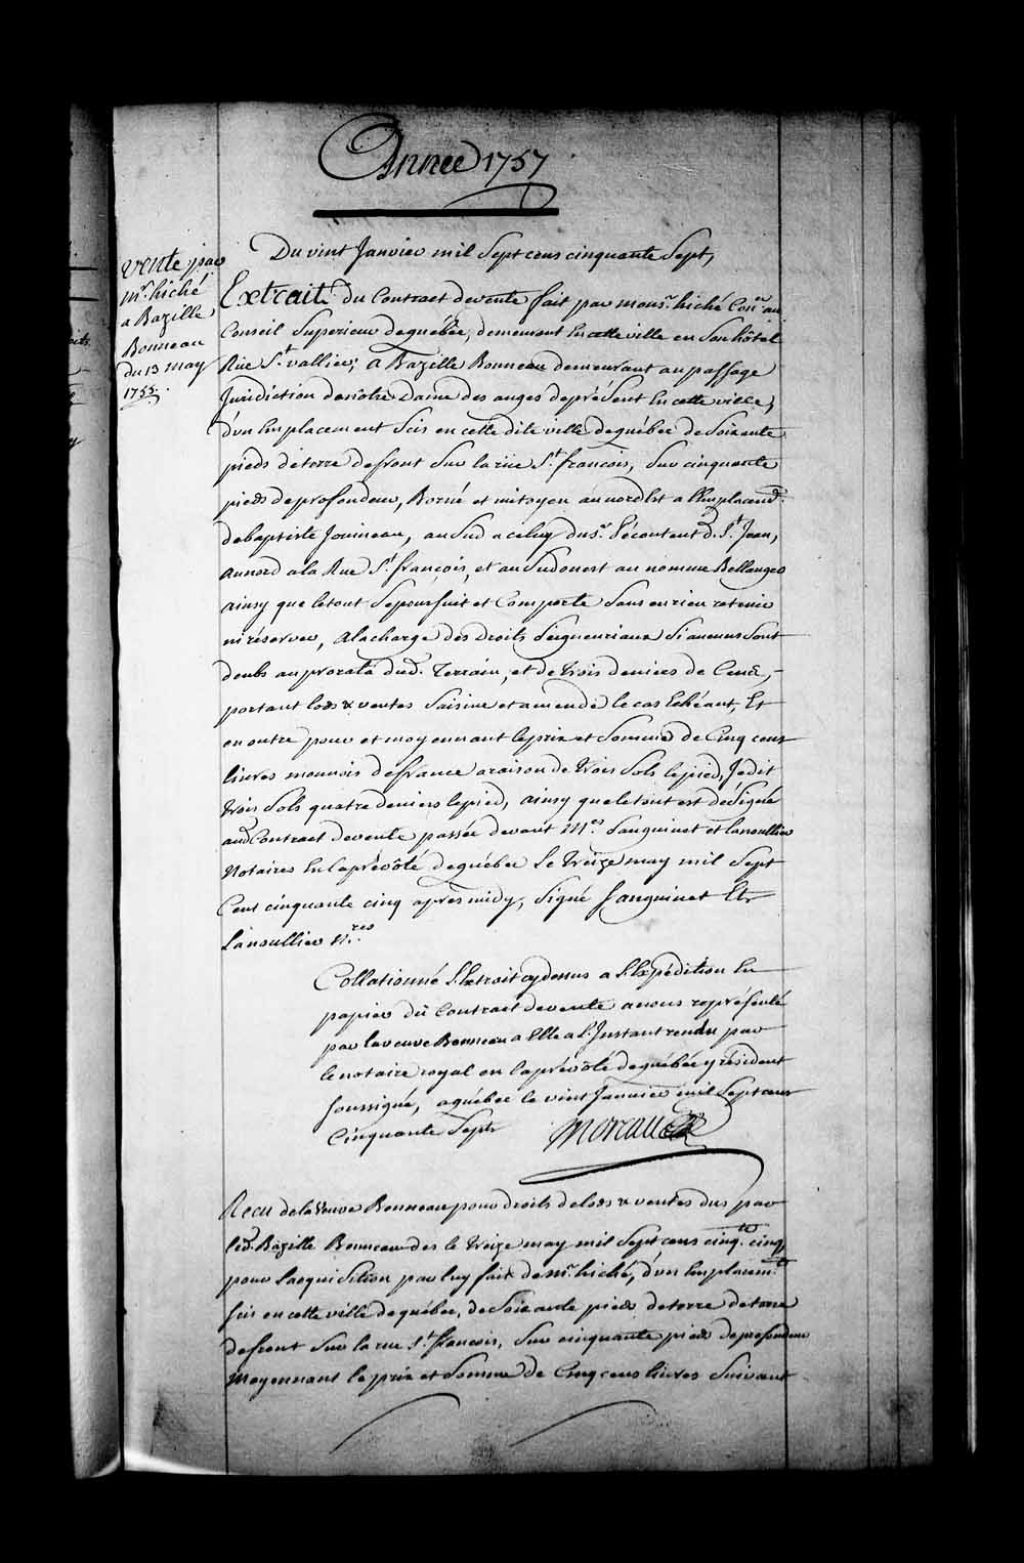 Année 1757
Vente par
Mr. hiché
a Bazille
Bonneau
du 13 may
1755.
Du vint Janvier mil Sept cens cinquante Sept,
Extrait du Contract de vente fait par monsr. hiché Coner. au
Conseil Superieur de québec, demeurant En cette ville en Son hôtel
Rüe St. vallier; a Bazille Bonneau demeurant au passage
Jurisdiction de nôtre Dame des anges de présent En cette ville,
d'un Emplacement Scis en cette dite ville de québec de Soixante
pieds de terre de front Sur la rüe St. francois, Sur cinquante
pieds de profondeur, Borné et mitoyen au nord Est a l'Emplacemt.
de baptiste Jouineau, au Sud a celuy du Sr. Lécontent d. St. Jean,
au nord a la Rue St. françois, et au Sudouest au nommé Bellanger
ainsy que le tout Se poursuit et Comporte Sans en rien retenir
ni réserver, a la charge des droits Seigneuriaux Si aucuns Sont
deubs au prorata dud. Terrain, et de trois deniers de Cens,
portant lods & ventes Saisine et amende le cas Echéant, Et
en outre pour et moyennant le prix et Somme de Cinq cens
livres monnois de france a raison de trois Sols le pied, Je dit
trois Sols quatre deniers le pied, ainsy que le tout est désigné
aud Contract de vente passée devant Mes. Sanguinet et Lanoullier
Notaires En la prévôté de québec Le treize may mil Sept
Cent cinquante cinq après midy, Signé Sanguinet Et
Lanoullier Nres.
Collationné L'Extrait cy dessus a L'Expédition En
papier du Contract de vente a nous représenté
par la veuve Bonneau a Elle a L'Instant rendu par
le notaire royal en la prévôté de québec y résident
soussigné, a québec le vint Janvier mil Sept cens
Cinquante Sept
Moreau
Recu de la Veuve Bonneau pour droits de lods & ventes dus par
led. Bazille Bonneau des le treize may mil Sept cens cinqte. cinq
pour l'acquisition par luy fait de mr. hiché, d'un Emplacemt.
scis en cette ville de québec, de Soixante pieds de terre de terre
de front Sur la rue St. francois, Sur cinquante pieds de profondeur
Moyennant le prix et Somme de Cinq cens livres Suivant